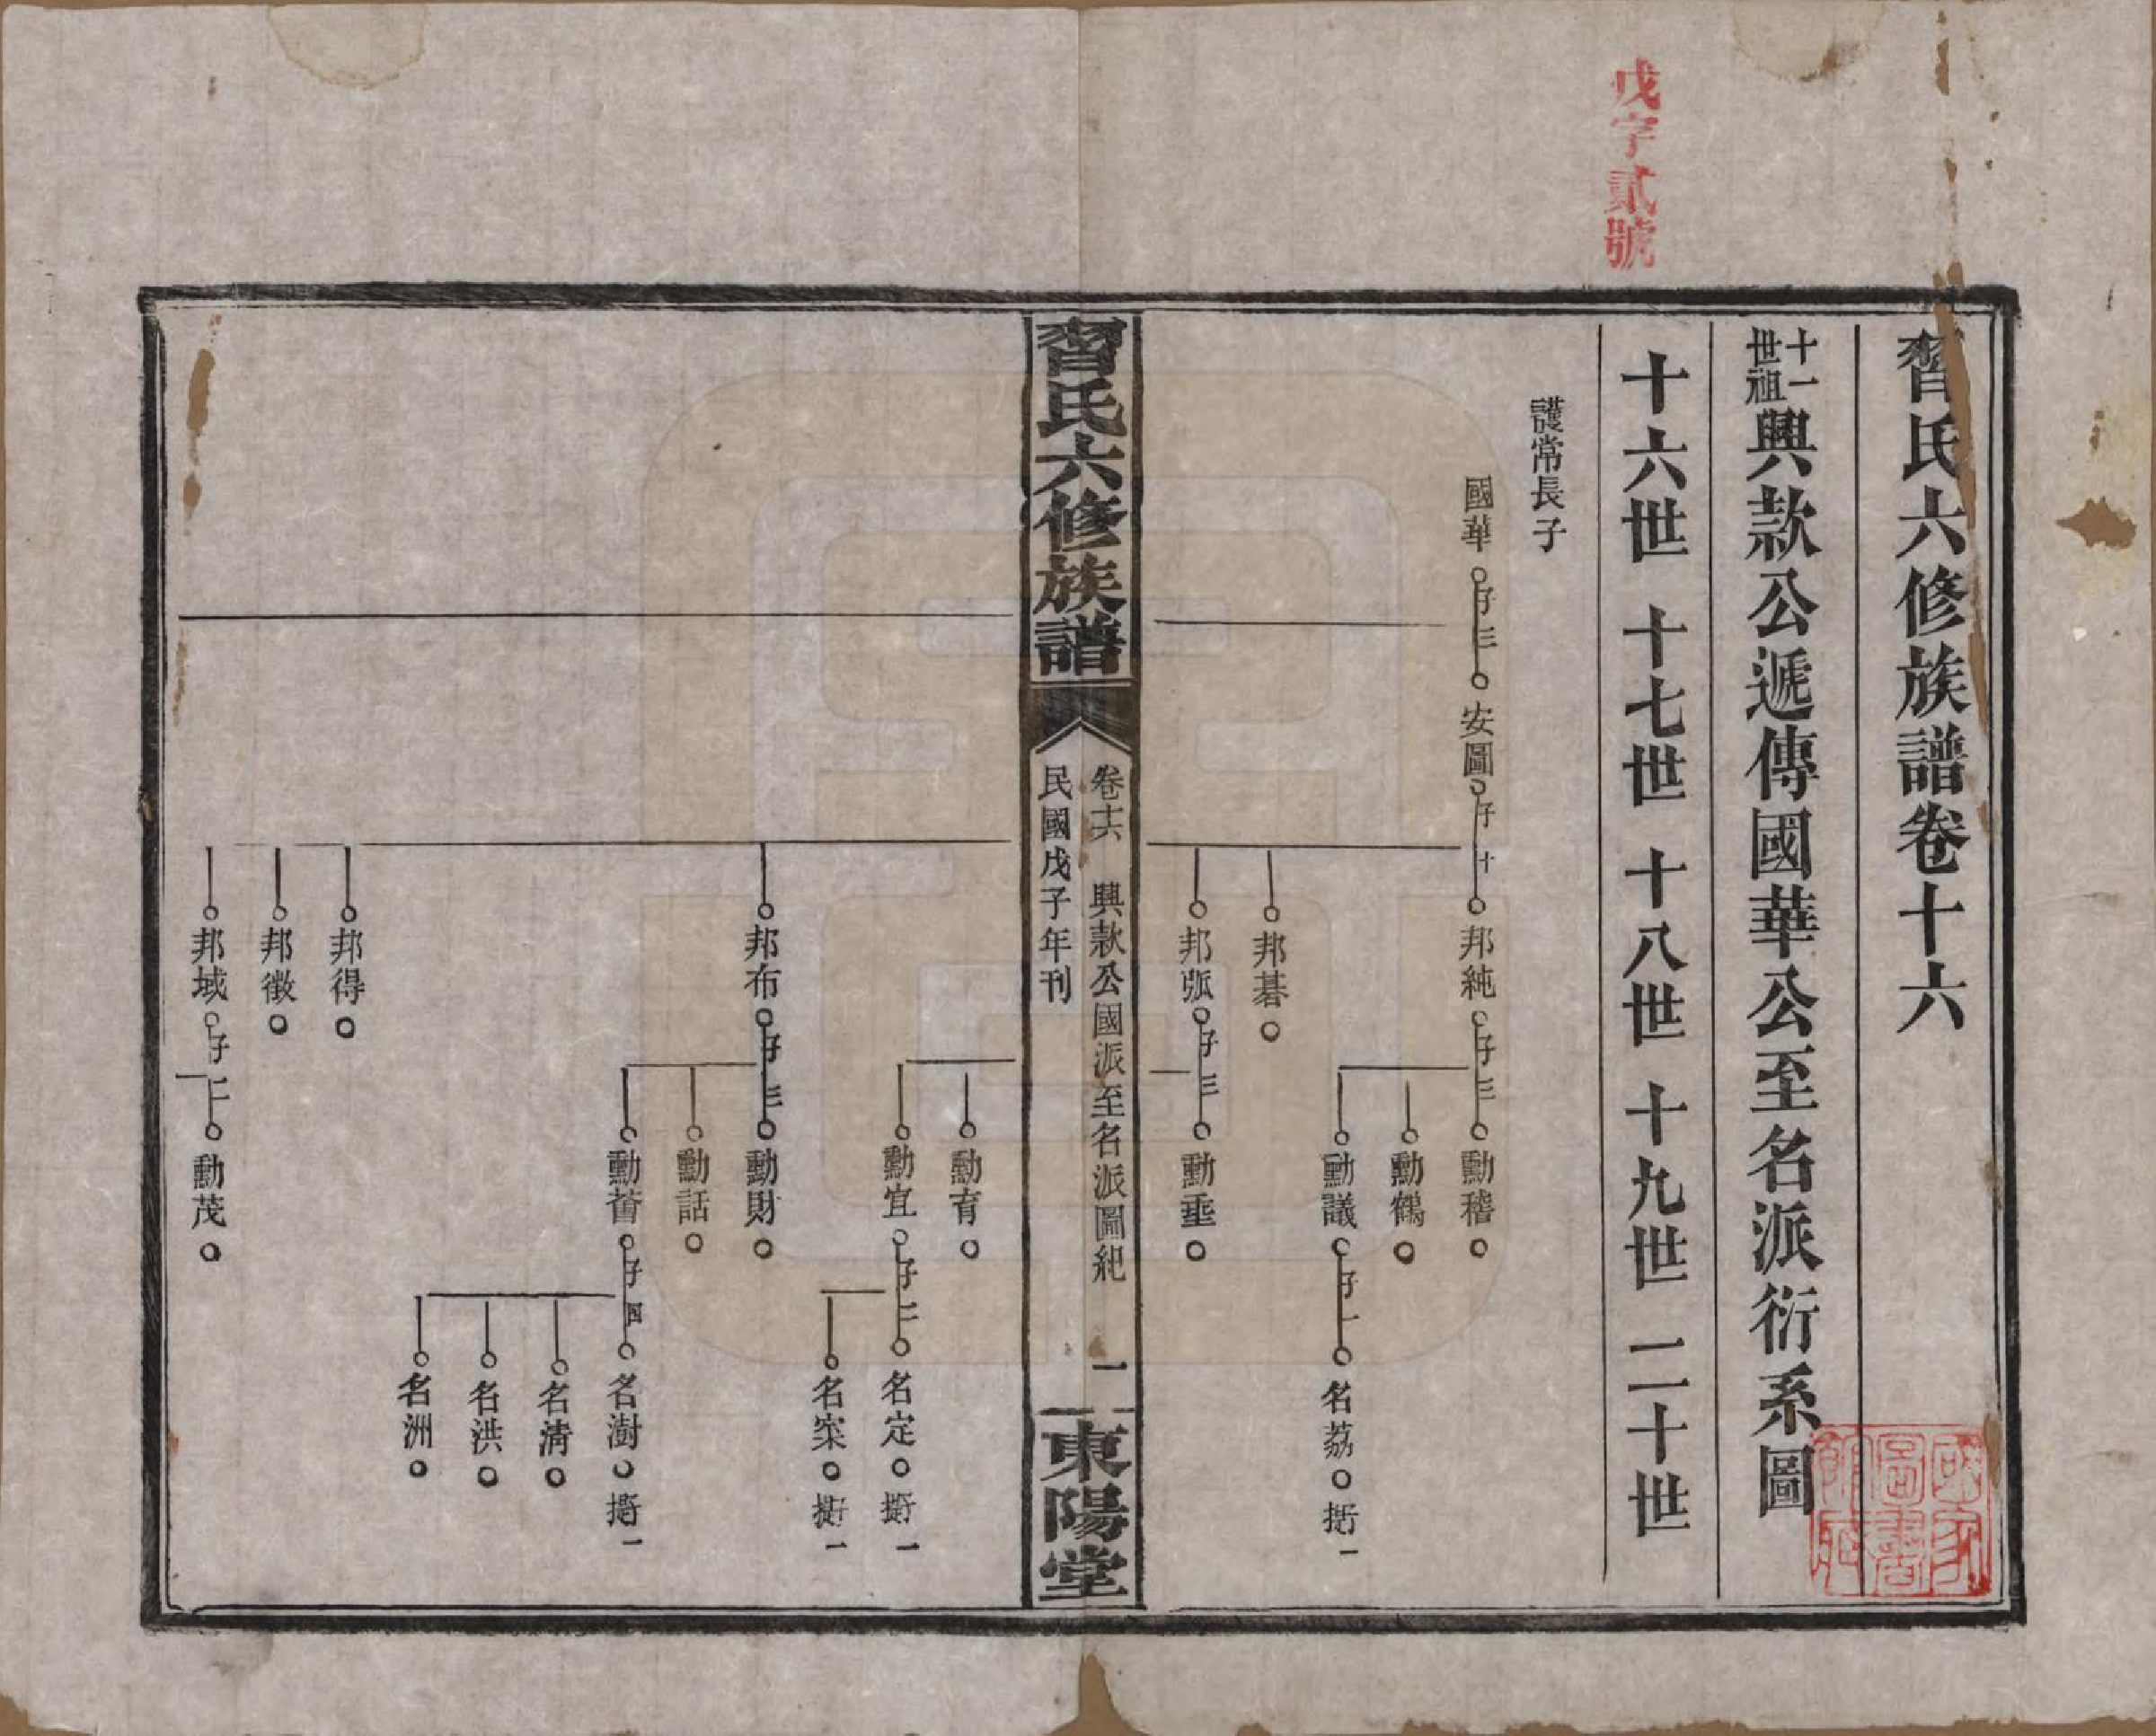 戊字貳號
習氏六修族譜卷十六
十一世祖興款公遞傳國華公至名派衍系圖
十六世 十七世 十八世 十九世 二十世
護常長子
國華 子三 安圖 子十 邦純 子三 勳稽
勳鶴
勳議 子一 名荔 折一
邦碁
邦弧 子三 勳垂
習氏六修族譜
卷十六 興款公國派至名派圖紀 一
民國戊子年刊
東陽堂
勳育
勳宜 子二 名定
名案
邦布 子三 勳財
勳話
勳蓄 子四 名澍
名淸
名洪
名洲
邦得
邦徵
邦域 子二 勳茂
國家圖書館藏